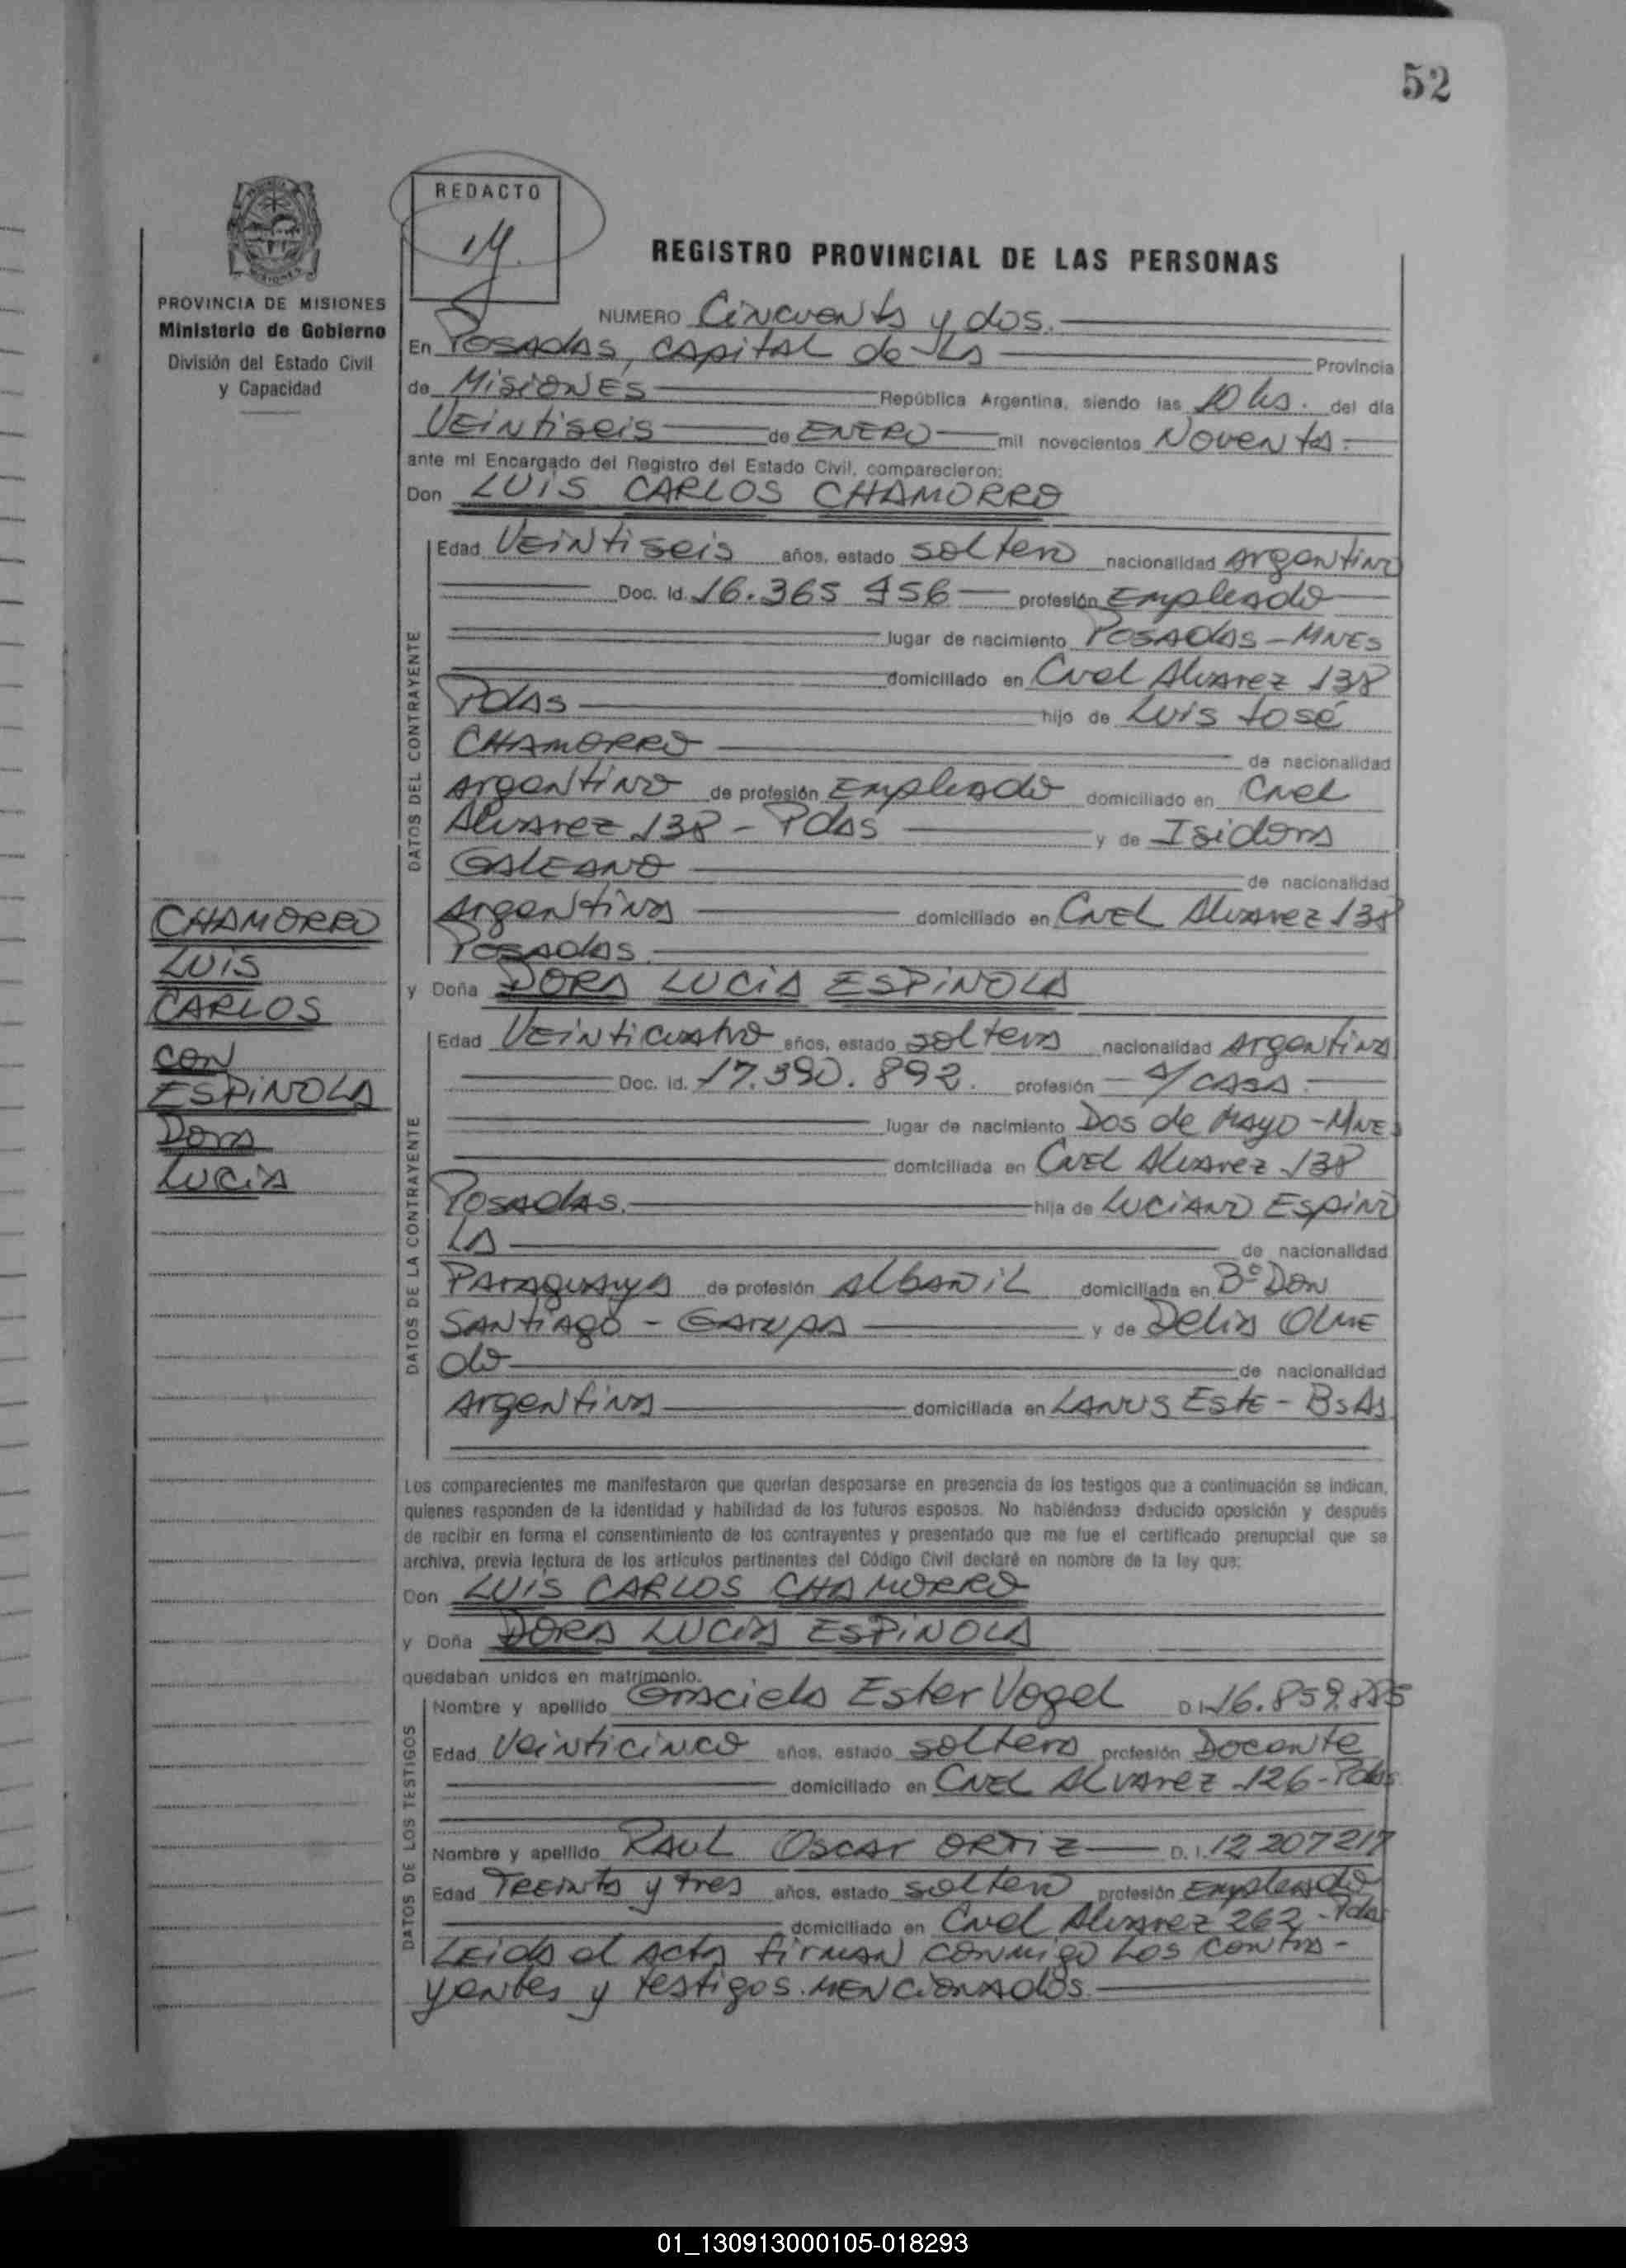 52
REDACTO
REGISTRO PROVINCIAL DE LAS PERSONAS
PROVINCIA DE MISIONES
Ministerio de Gobierno
División del Estado Civil
y Capacidad
NUMERO Cincuenta y dos.
En Posadas, capital de la Provincia
de Misiones República Argentina, siendo las 10 hs. del día
Veintiseis de ENERO mil novecientos Noventa
ante mí Encargado del Registro del Estado Civil, comparecieron:
Don LUIS CARLOS CHAMORRO
DATOS DEL CONTRAYENTE
Edad Veintiseis años, estado soltero nacionalidad Argentino
Doc. Id. 16.365 956 profesión Empleado
lugar de nacimiento POSADAS - MNES
domiciliado en Cnel Alvarez 138
Pdas hijo de Luis José
CHAMORRO de nacionalidad
Argentino de profesión Empleado domiciliado en Cnel
Alvarez 138 - Pdas y de Isidora
GALEANO de nacionalidad
Argentina domiciliado en Cnel Alvarez 138
Posadas.
CHAMORRO
LUIS
CARLOS
con
ESPINOLA
Dora
Lucia
y Doña DORA LUCIA ESPINOLA
DATOS DE LA CONTRAYENTE
Edad Veinticuatro años, estado soltera nacionalidad Argentina
Doc. Id. 17.390.892. profesión A/CASA.
lugar de nacimiento Dos de Mayo - MNES
domiciliada en Cnel Alvarez 138
Posadas. hija de LUCIANO ESPINO
LA de nacionalidad
Paraguaya de profesión Albañil domiciliada en Bº Don
SANTIAGO - GARUPA y de Delia OLME
do de nacionalidad
Argentina domiciliada en LANUS ESTE - BsAs
Los comparecientes me manifestaron que querían desposarse en presencia de los testigos que a continuación se indican,
quienes responden de la identidad y habilidad de los futuros esposos. No habiéndose deducido oposición y después
de recibir en forma el consentimiento de los contrayentes y presentado que me fue el certificado prenupcial que se
archiva, previa lectura de los artículos pertinentes del Código Civil declaré en nombre de la ley que:
Don LUIS CARLOS CHAMORRO
y Doña DORA LUCIA ESPINOLA
quedaban unidos en matrimonio.
DATOS DE LOS TESTIGOS
Nombre y apellido Graciela Ester Vogel D.I. 16.859.885
Edad Veinticinco años, estado soltera profesión Docente
domiciliado en CNEL ALVAREZ 126 - Pdas
Nombre y apellido RAUL OSCAR ORTIZ D.I. 12 207217
Edad Treinta y tres años, estado soltero profesión Empleado
domiciliado en Cnel Alvarez 262 - Pdas
Leida el Acta firman conmigo los contra-
yentes y testigos mencionados.
01_130913000105-018293